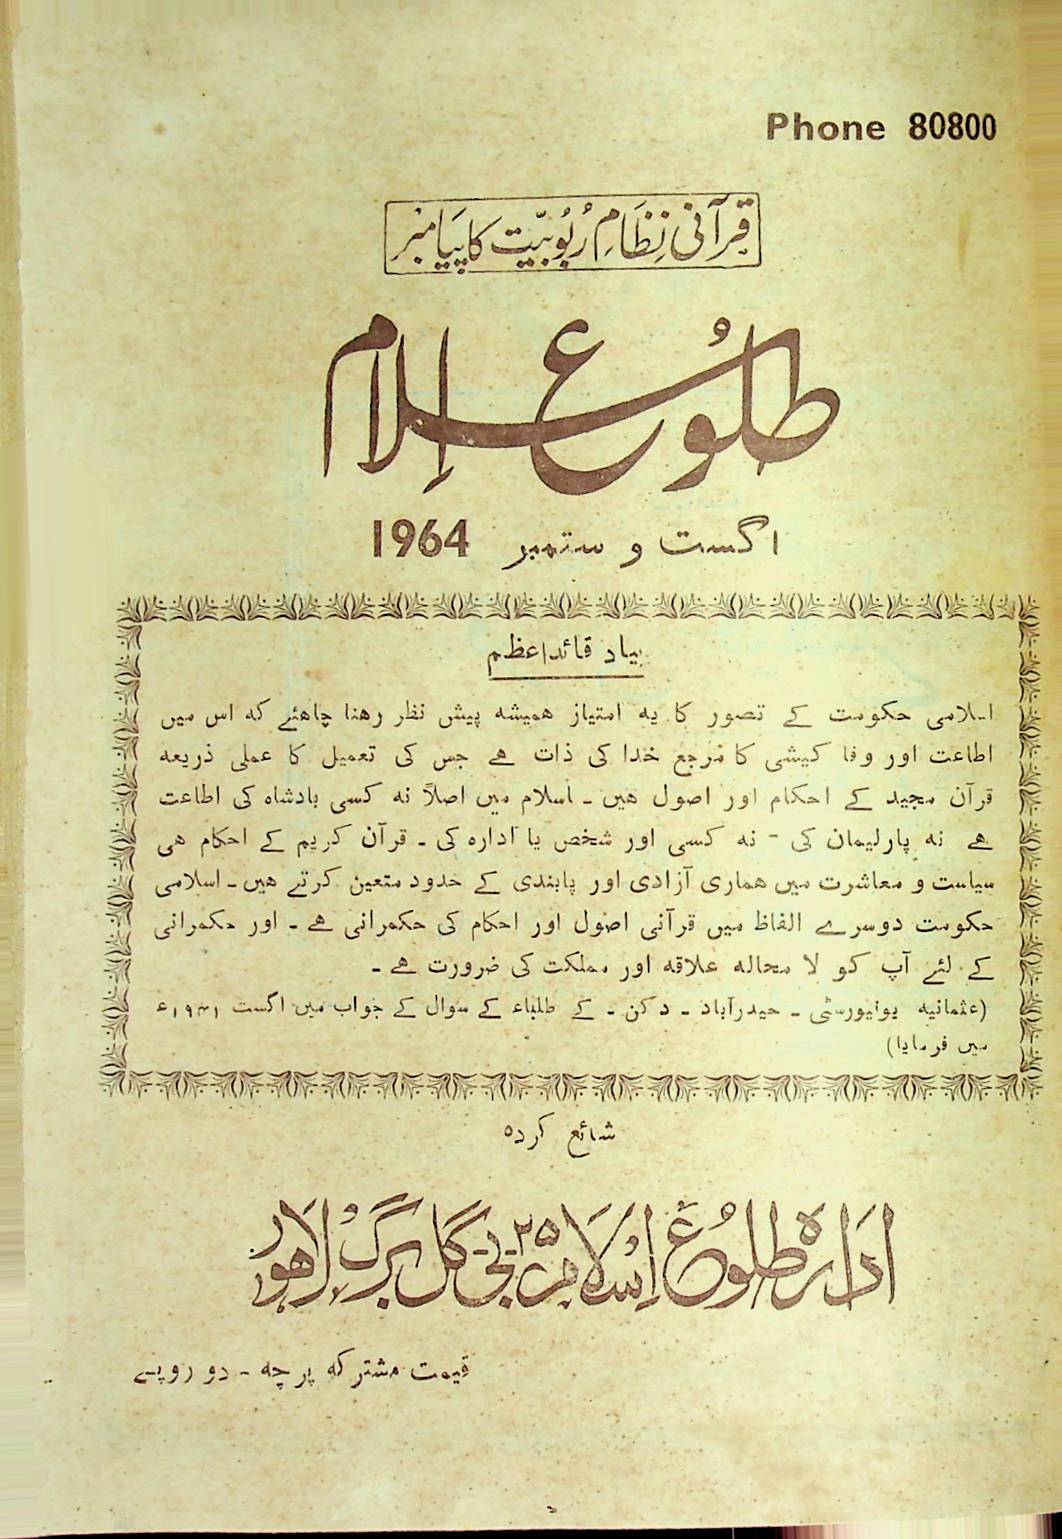 Phone 80800
قرآنی نظامِ ربُوبیّت کا پیَامبر
طلُوعِ اِسلام
اگست و ستمبر 1964
بیاد قائداعظم
اسلامی حکومت کے تصور کا یہ امتیاز ہمیشہ پیش نظر رہنا چاہئے کہ اس میں
اطاعت اور وفا کیشی کا مرجع خدا کی ذات ہے جس کی تعمیل کا عملی ذریعہ
قرآن مجید کے احکام اور اصول ہیں ۔ اسلام میں اصلاً نہ کسی بادشاہ کی اطاعت
ہے نہ پارلیمان کی - نہ کسی اور شخص یا ادارہ کی ۔ قرآن کریم کے احکام ہی
سیاست و معاشرت میں ہماری آزادی اور پابندی کے حدود متعین کرتے ہیں ۔ اسلامی
حکومت دوسرے الفاظ میں قرآنی اصول اور احکام کی حکمرانی ہے ۔ اور حکمرانی
کے لئے آپ کو لا محالہ علاقہ اور مملکت کی ضرورت ہے ۔
(عثمانیہ یونیورسٹی ۔ حیدرآباد ۔ دکن ۔ کے طلباء کے سوال کے جواب میں اگست ۱۹۴۱ء
میں فرمایا)
شائع کردہ
ادارہ طلُوعِ اِسلام ۲۵-بی-گلبرگ لاھور
قیمت مشترکہ پرچہ ۔ دو روپے